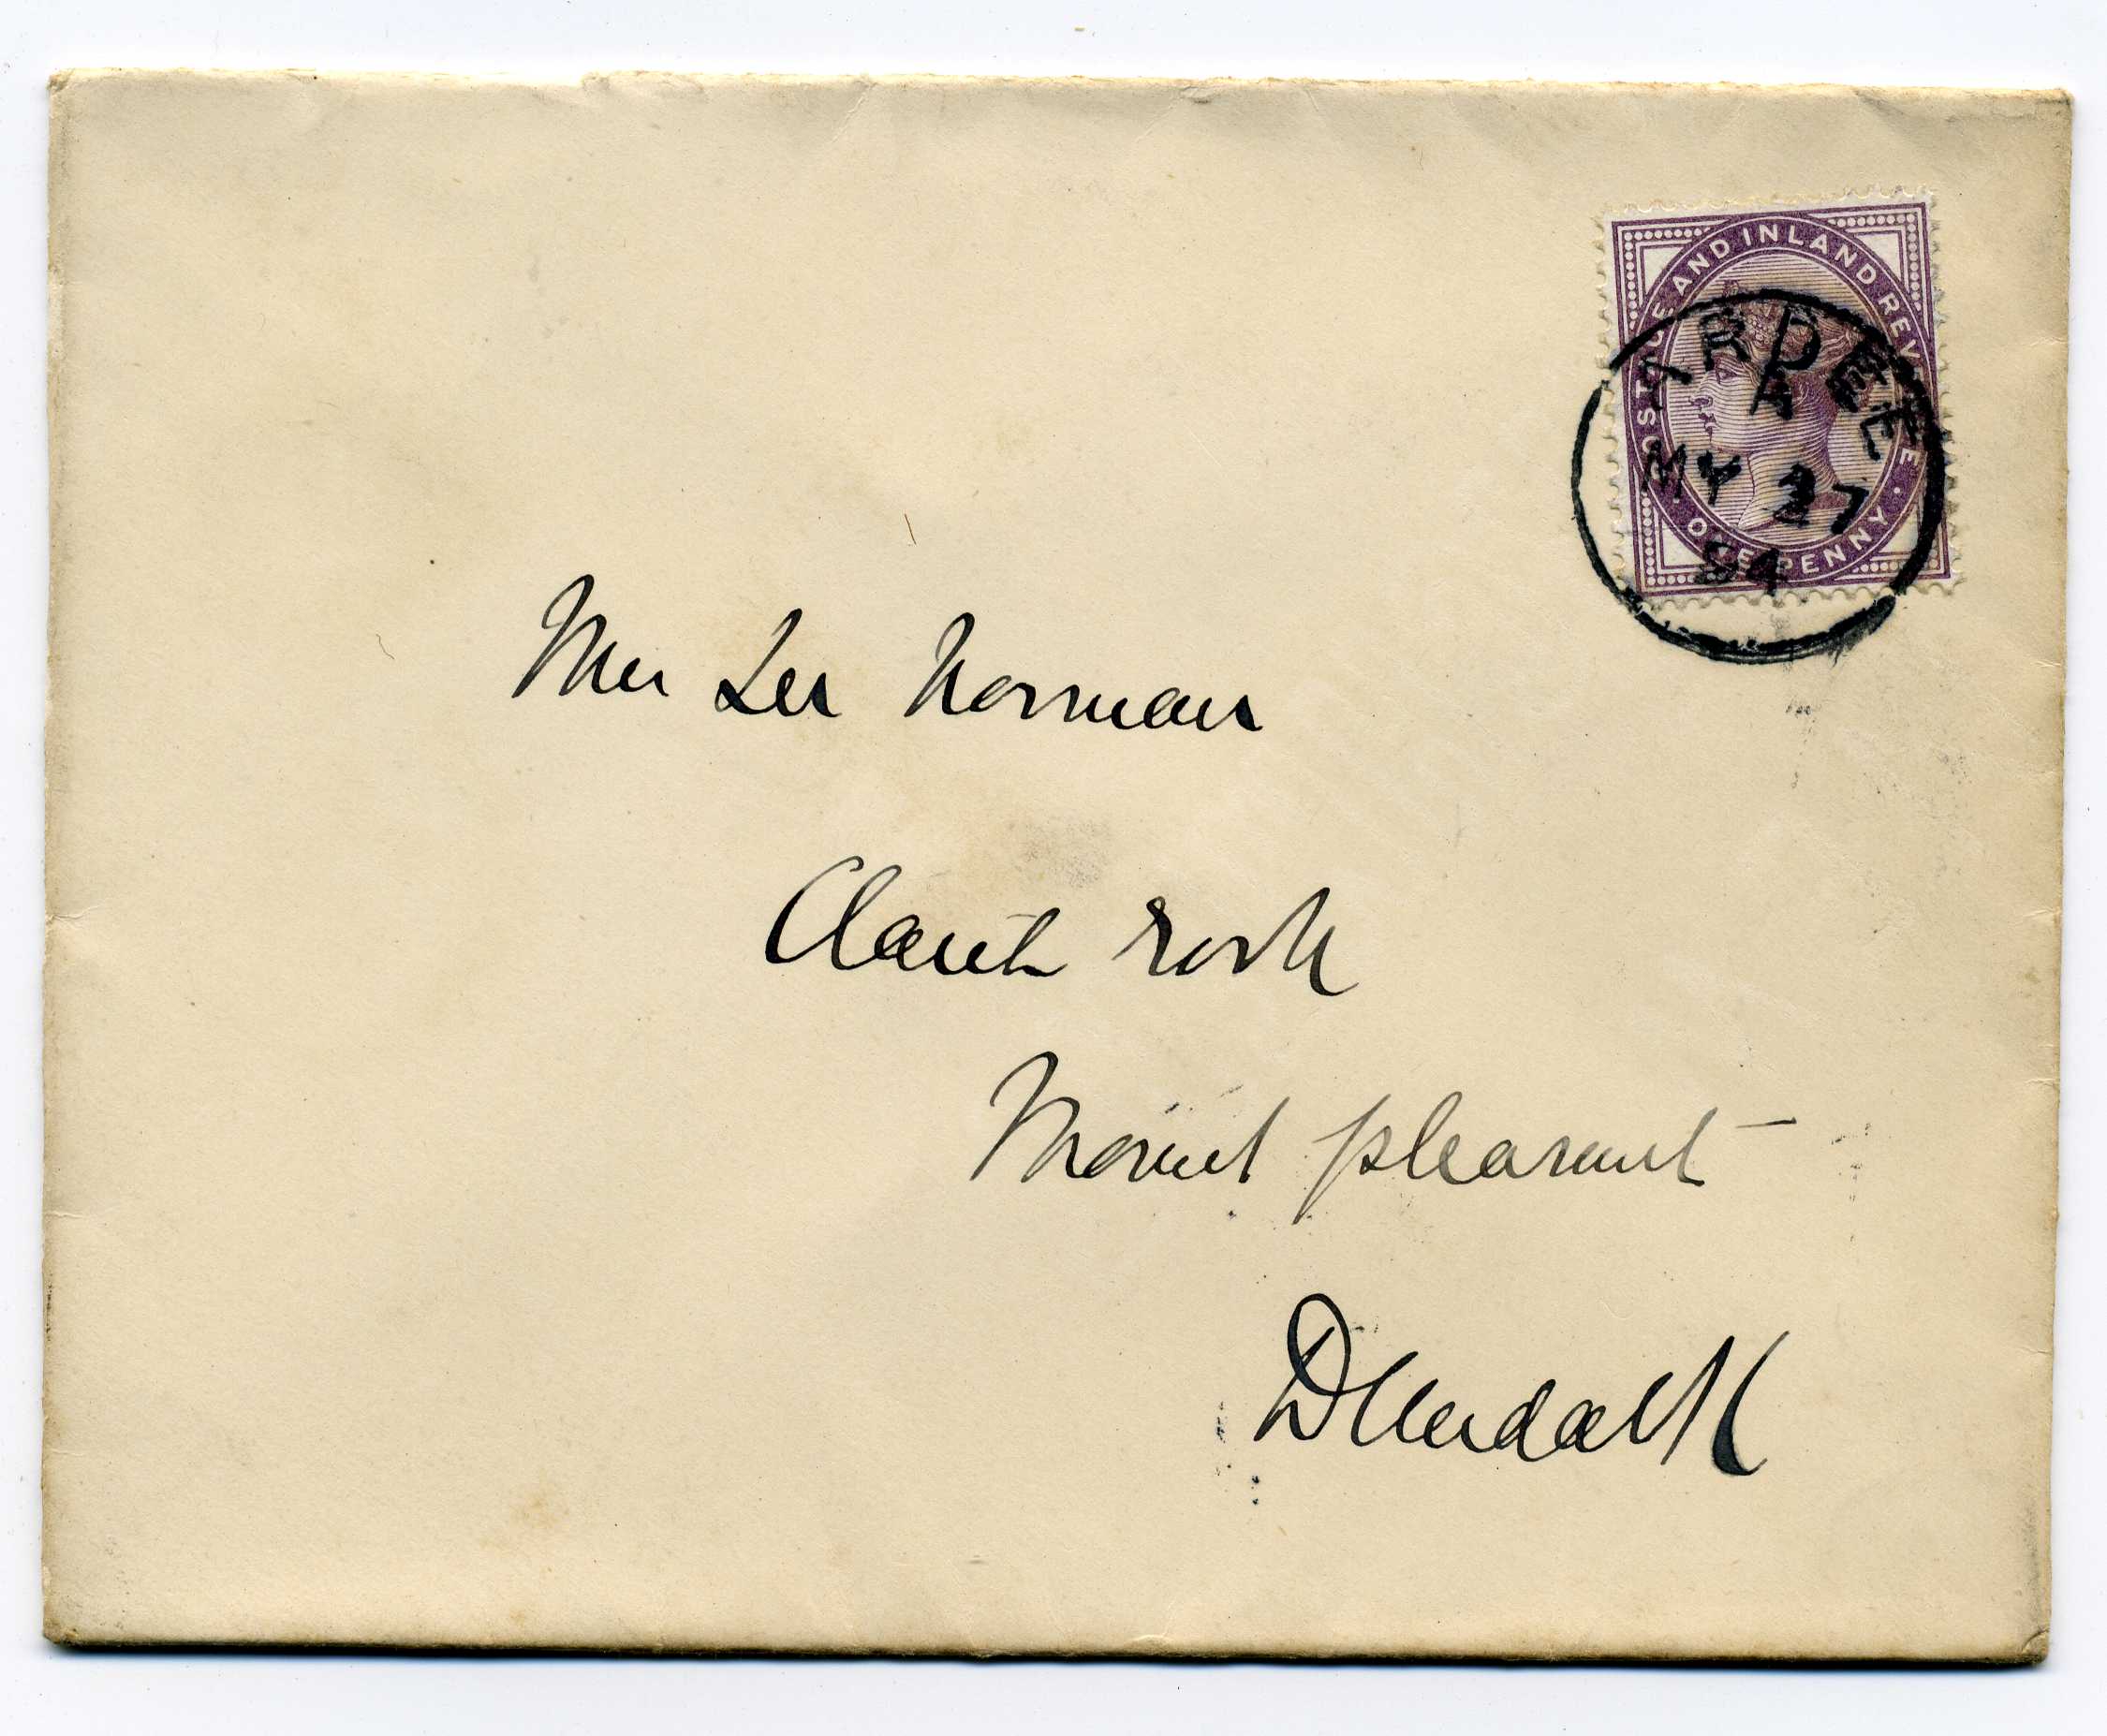 POSTAGE AND INLAND REVENUE
ONE PENNY
ARDEE
A
MY 27
94
Mrs Lee Norman
Mount pleasant
Dundalk